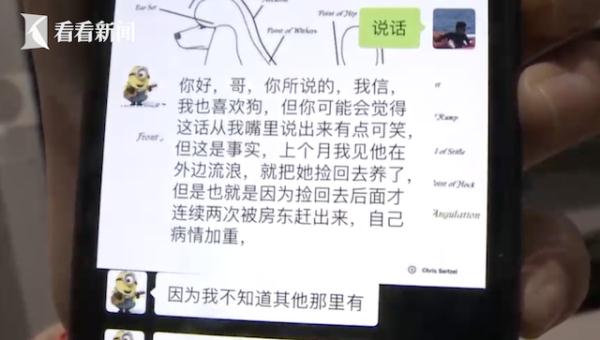 看看新闻
Ear Set
Point of Hip
Point of Withers
说话
你好，哥，你所说的，我信，
我也喜欢狗，但你可能会觉得
这话从我嘴里说出来有点可笑，
但这是事实，上个月我见他在
外边流浪，就把她捡回去养了，
但是也就是因为捡回去后面才
连续两次被房东赶出来，自己
病情加重，
Rump
Front
of Stifle
Point of Hock
Angulation
Chris Sertzel
因为我不知道其他那里有